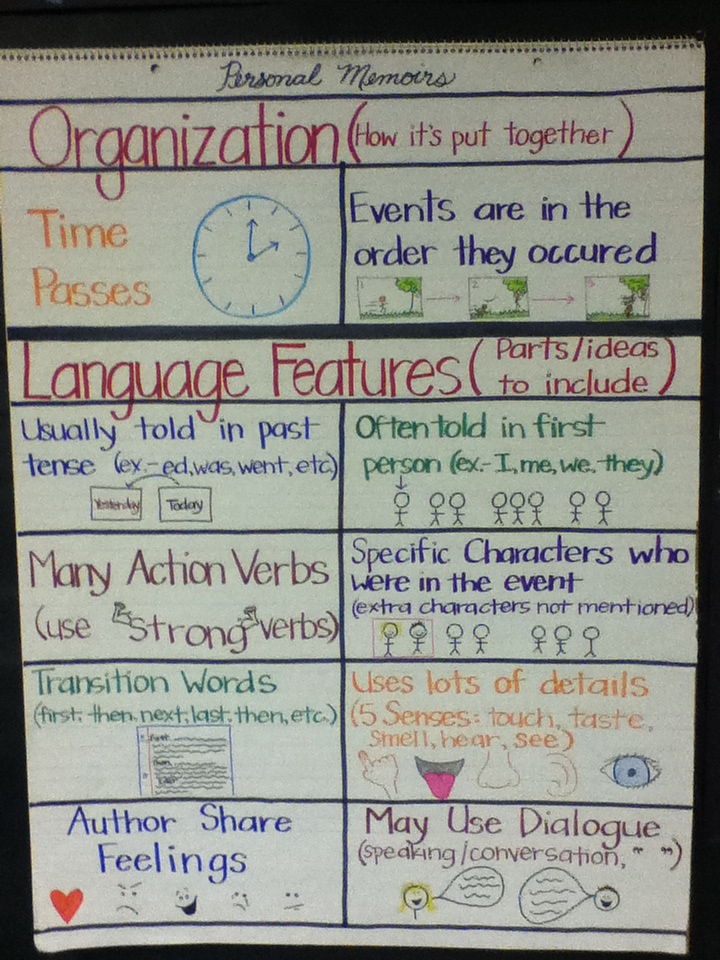 Personal Memoirs
Organization (How it's put together)
Time
Passes
Events are in the
order they occured
1
2
3
Language Features (Parts/ideas
to include)
Usually told in past
tense (ex.-ed, was, went, etc)
Yesterday Today
Often told in first
person (ex.- I, me, we, they)
Many Action Verbs
(use "Strong" verbs)
Specific Characters who
were in the event
(extra characters not mentioned)
Transition Words
(first, then, next, last, then, etc.)
First
Then
Last
Uses lots of details
(5 Senses: touch, taste,
smell, hear, see)
Author Share
Feelings
May Use Dialogue
(speaking/conversation, " ")